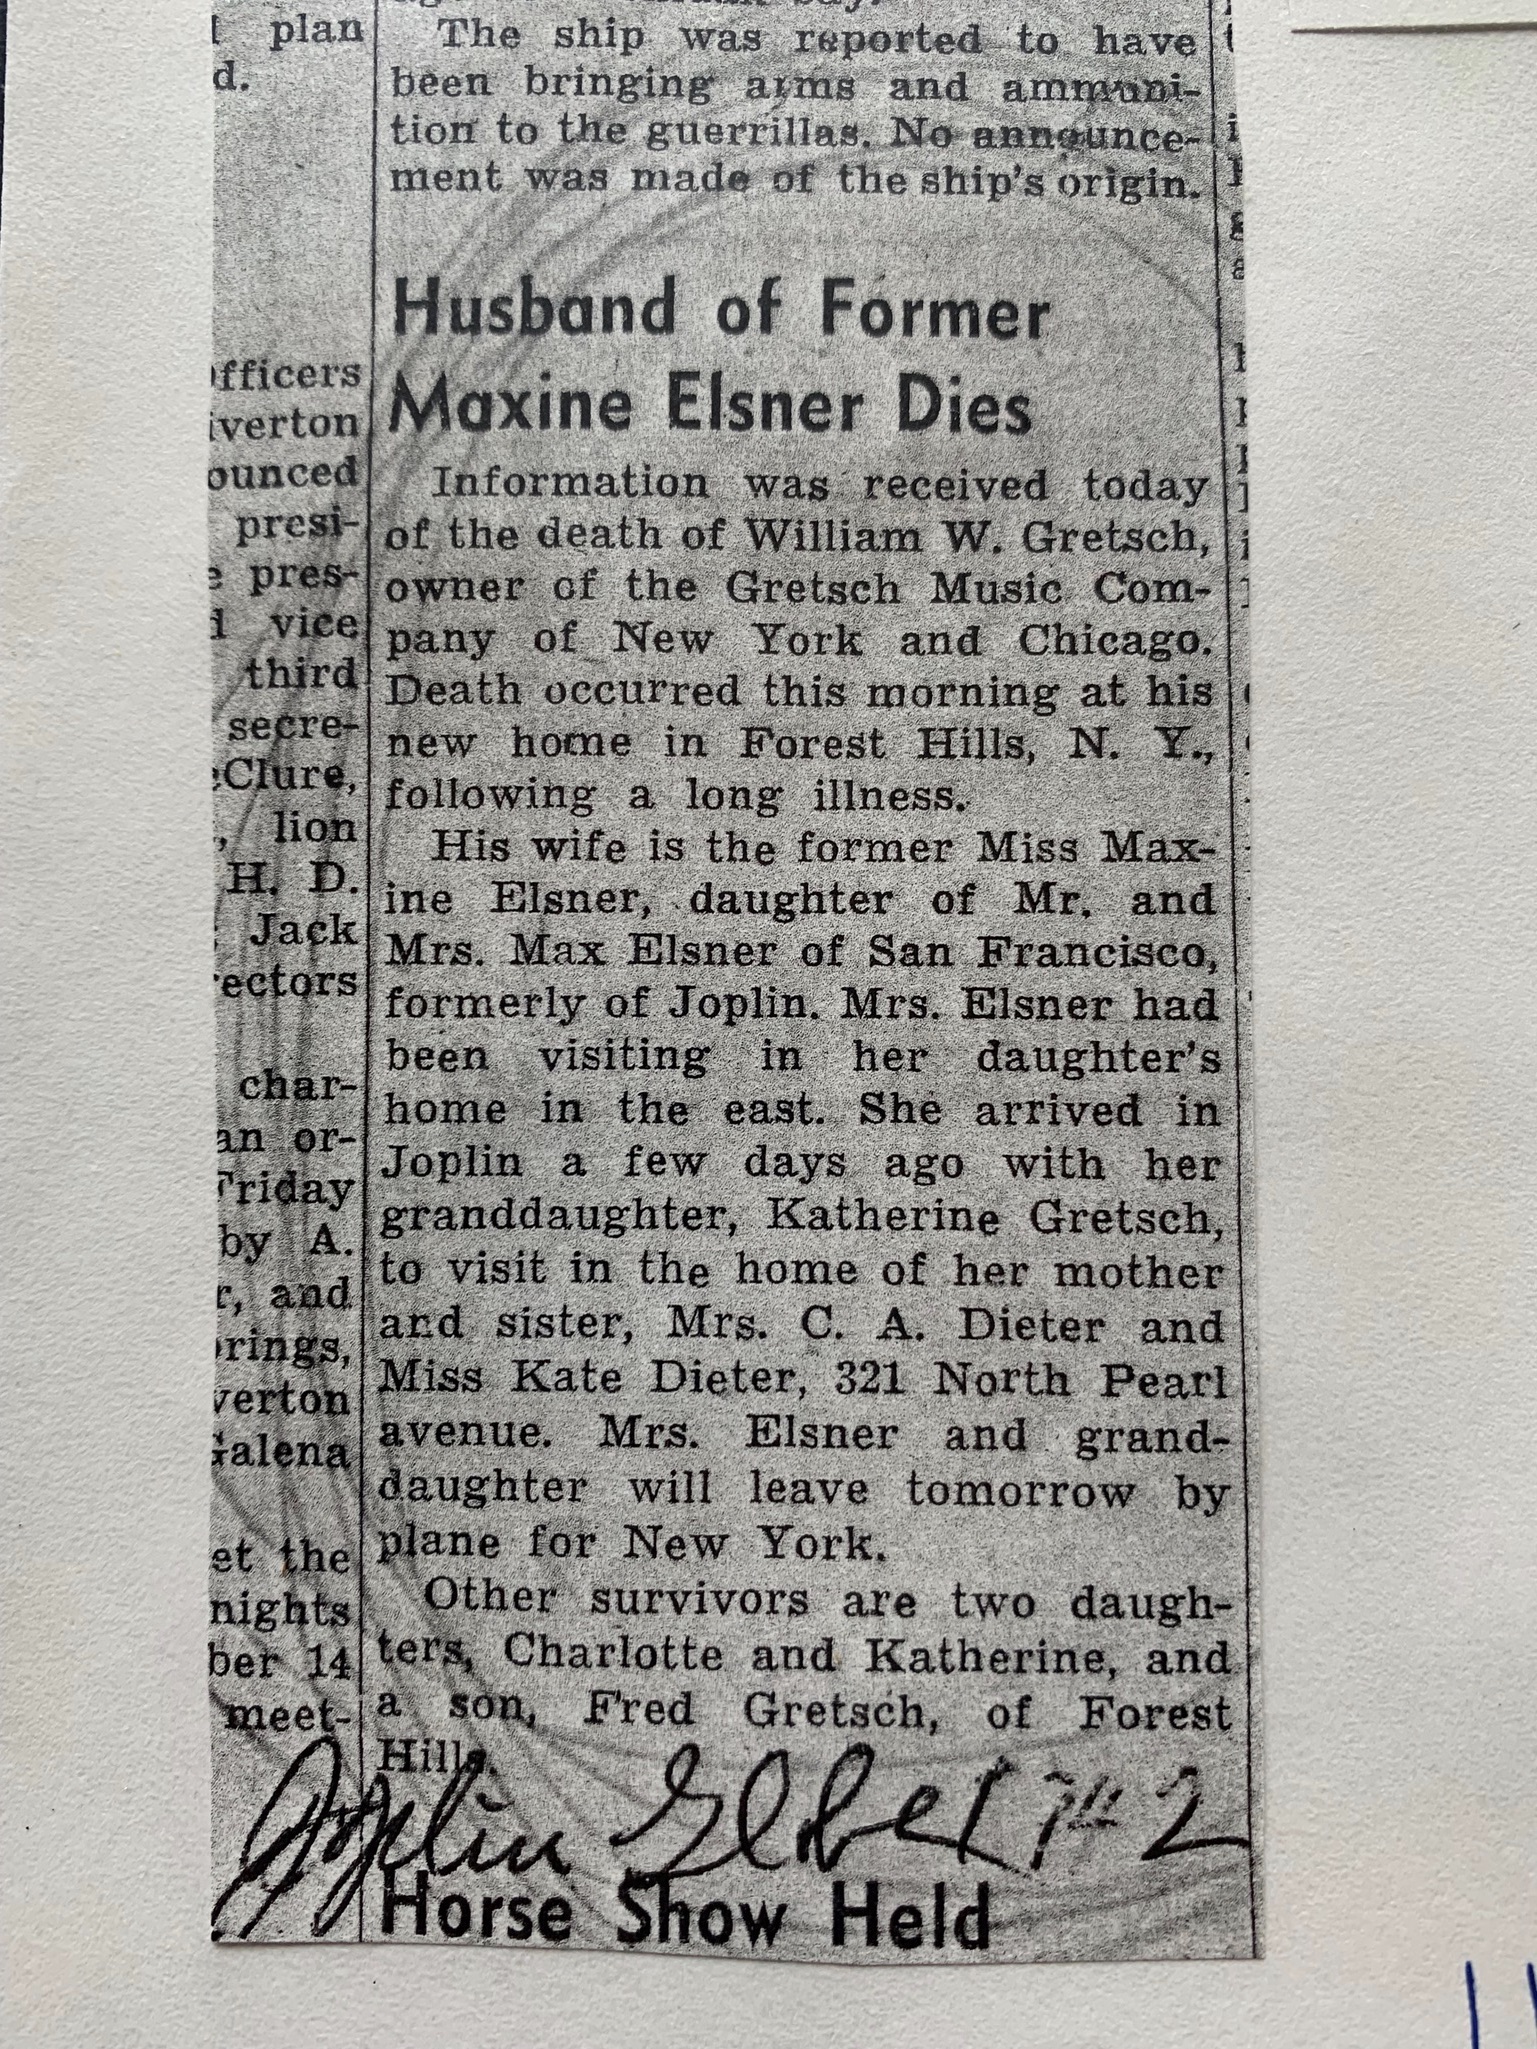 The ship was reported to have
been bringing arms and ammuni-
tion to the guerrillas. No announce-
ment was made of the ship's origin.
Husband of Former
Maxine Elsner Dies
Information was received today
of the death of William W. Gretsch,
owner of the Gretsch Music Com-
pany of New York and Chicago.
Death occurred this morning at his
new home in Forest Hills, N. Y.,
following a long illness.
His wife is the former Miss Max-
ine Elsner, daughter of Mr. and
Mrs. Max Elsner of San Francisco,
formerly of Joplin. Mrs. Elsner had
been visiting in her daughter's
home in the east. She arrived in
Joplin a few days ago with her
granddaughter, Katherine Gretsch,
to visit in the home of her mother
and sister, Mrs. C. A. Dieter and
Miss Kate Dieter, 321 North Pearl
avenue. Mrs. Elsner and grand-
daughter will leave tomorrow by
plane for New York.
Other survivors are two daugh-
ters, Charlotte and Katherine, and
a son, Fred Gretsch, of Forest
Hills.
Joplin Globe
Horse Show Held
plan
d.
fficers
iverton
ounced
presi-
pres-
vice
third
secre-
Clure,
, lion
H. D.
Jack
ectors
char-
an or-
Friday
by A.
r, and
rings,
verton
Galena
et the
nights
ber 14
meet-